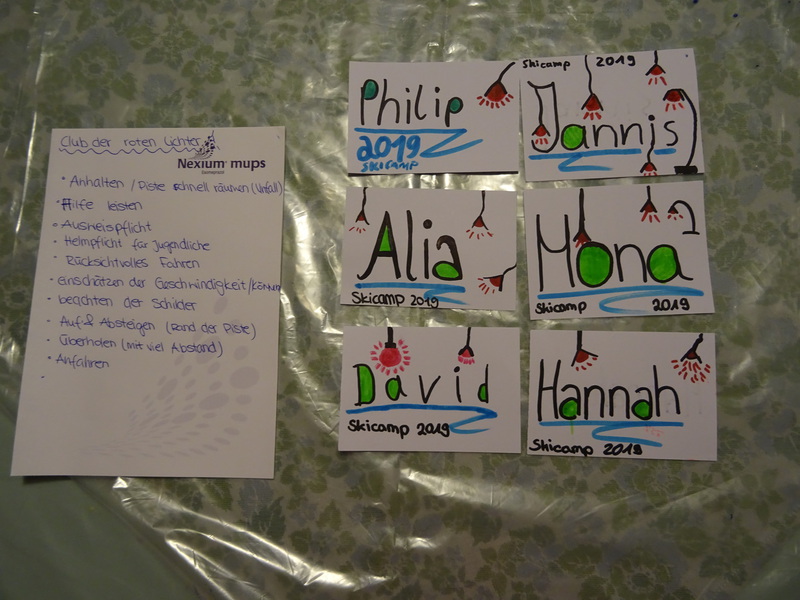 Club der roten Lichter
Nexium® mups
• Anhalten / Piste schnell räumen (Unfall)
• Hilfe leisten
• Ausweispflicht
• Helmpflicht für Jugendliche
• Rücksichtvolles Fahren
• einschätzen der Geschwindigkeit/können
• beachten der Schilder
• Auf & Absteigen (Rand der Piste)
• Überholen (mit viel Abstand)
• Anfahren
•
Philip
2019
SKICAMP
Skicamp 2019
Jannis
Alia
Skicamp 2019
Mona
Skicamp 2019
David
Skicamp 2019
Hannah
Skicamp 2019